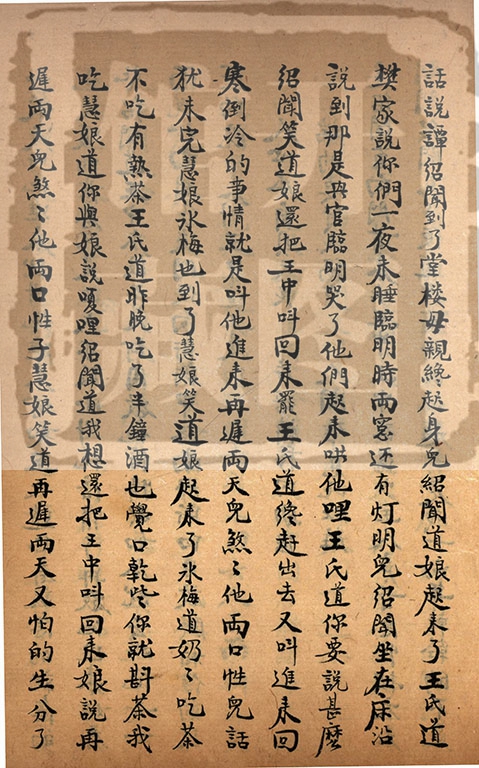 話說譚紹聞到了堂樓母親終起身兒紹聞道娘起來了王氏道
樊家說你們一夜未睡臨明時兩窓还有灯明兒紹聞坐在床沿
說到那是丹官臨明哭了他們起來哄他哩王氏道你要說甚麼
紹聞笑道娘還把王中叫回來罷王氏道終赶出去又叫進来回
寒倒冷的事情就是叫他進来再遲兩天兒煞〻他兩口性兒話
犹未完慧娘氷梅也到了慧娘笑道娘起来了氷梅道奶〻吃茶
不吃有熱茶王氏道昨晚吃了半鐘酒也覺口乾些你就斟茶我
吃慧娘道你與娘說嗄哩紹聞道我想還把王中叫回来娘說再
遲兩天兒煞〻他兩口性子慧娘笑道再遲兩天又怕的生分了